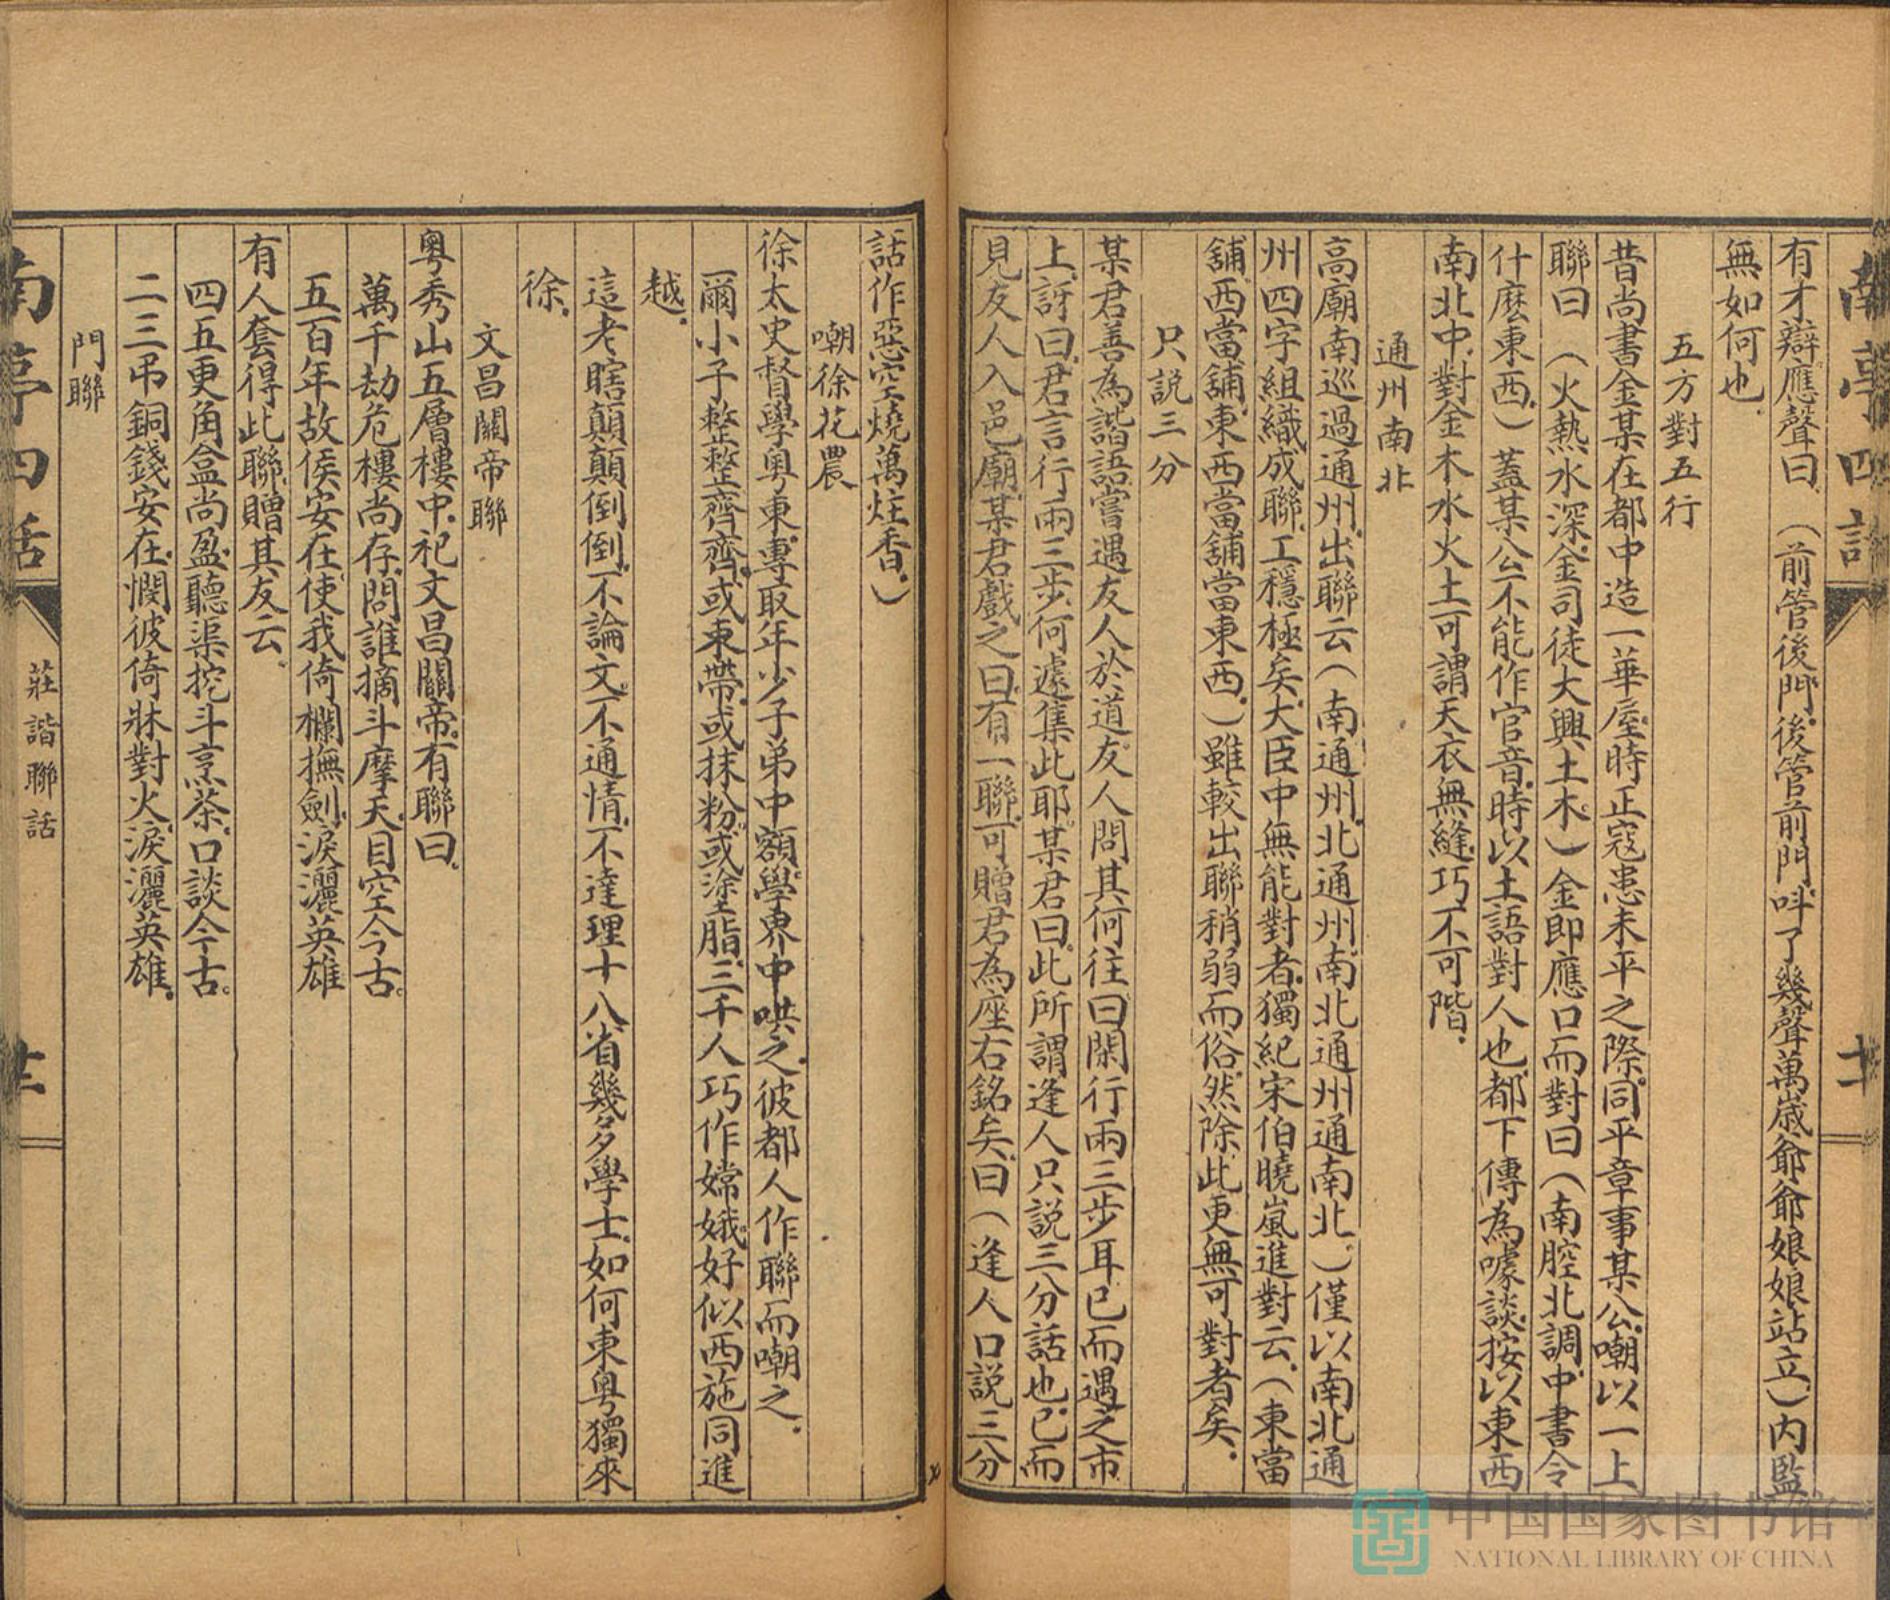 南亭四話
十
有才辯應聲曰（前管後門後管前門呌了幾聲萬歲爺爺爺娘娘站立）内監
無如何也
五方對五行
昔尚書金某在都中造一華屋時正寇患未平之際同平章事某公嘲以一上
聯曰（火熱水深金司徒大興土木）金即應口而對曰（南腔北調中書令
什麽東西）蓋某公不能作官音時以土語對人也都下傳為噱談按以東西
南北中對金木水火土可謂天衣無縫巧不可階
通州南北
高廟南巡過通州出聯云（南通州北通州南北通州通南北）僅以南北通
州四字組織成聯工穩極矣大臣中無能對者獨紀宋伯曉嵐進對云（東當
舖西當舖東西當舖當東西）雖較出聯稍弱而俗然除此更無可對者矣
只説三分
某君善為諧語嘗遇友人於道友人問其何往曰閑行兩三步耳已而遇之市
上訝曰君言行兩三步何遽集此耶某君曰此所謂逢人只説三分話也已而
見友人入邑廟某君戲之曰有一聯可贈君為座右銘矣曰（逢人口説三分
話作惡空燒萬炷香）
嘲徐花農
徐太史督學粤東專取年少子弟中額學界中哄之彼都人作聯而嘲之
爾小子整整齊齊或束帶或抹粉或塗脂三千人巧作嫦娥好似西施同進
越
這老瞎顛顛倒倒不論文不通情不達理十八省幾多學士如何東粤獨來
徐
文昌關帝聯
粤秀山五層樓中祀文昌關帝有聯曰
萬千劫危樓尚存問誰摘斗摩天目空今古
五百年故侯安在使我倚欄撫劍淚灑英雄
有人套得此聯贈其友云
四五更角盒尚盈聽渠挖斗烹茶口談今古
二三吊銅錢安在憫彼倚牀對火淚灑英雄
門聯
南亭四話
莊諧聯話
中国国家图书馆
NATIONAL LIBRARY OF CHINA